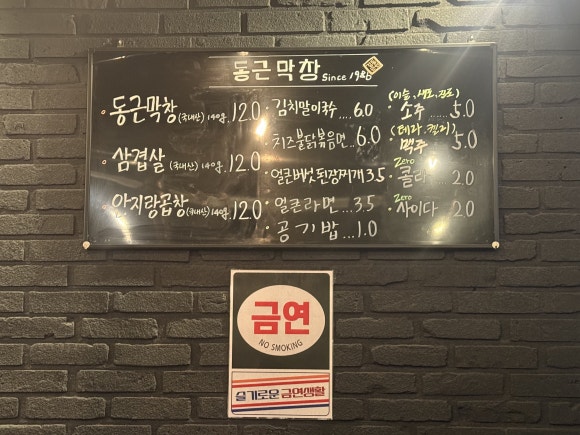 동근막창 Since 1986
동근막창 (국내산) 140g. 12.0
삼겹살 (국내산) 140g. 12.0
안지랑곱창 (국내산) 140g. 12.0
김치말이국수 .... 6.0
치즈불닭볶음면.. 6.0
얼큰버섯된장찌개 3.5
얼큰라면 ... 3.5
공기밥 ... 1.0
(이슬, 새로, 진로)
소주 .... 5.0
(테라, 켈리)
맥주 .... 5.0
Zero
콜라 .. 2.0
Zero
사이다 .. 2.0
금연
NO SMOKING
슬기로운 금연생활